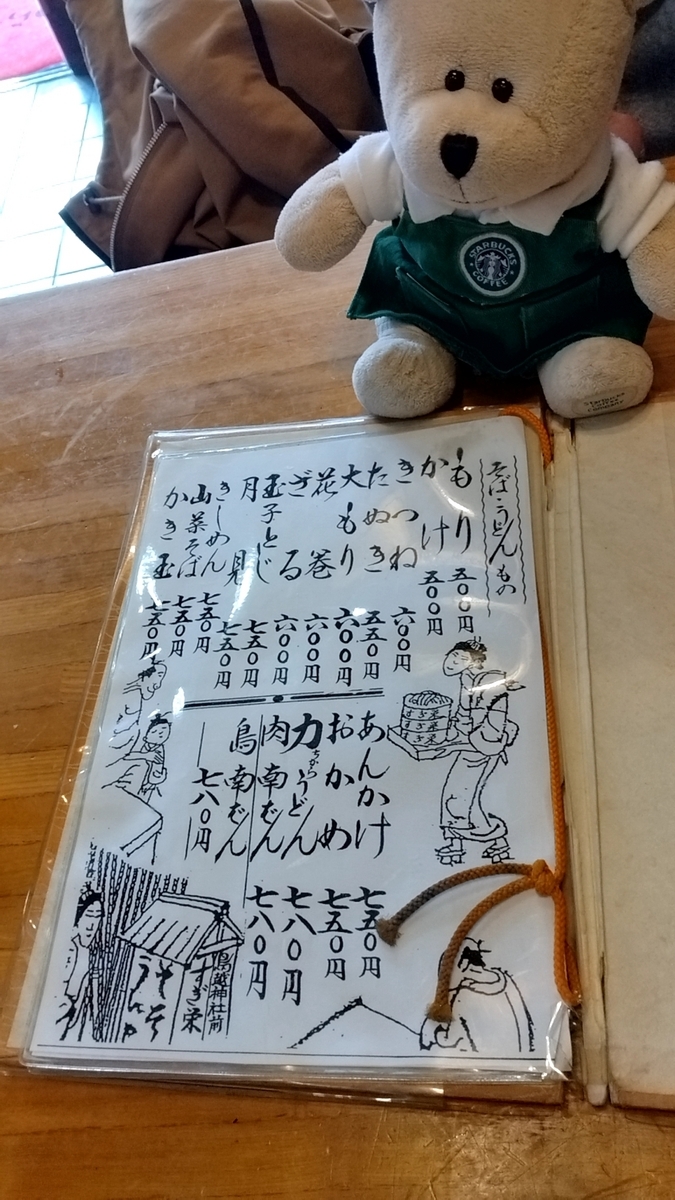 そば・うどんもの
もり 五〇〇円
かけ 五〇〇円
きつね 六〇〇円
たぬき 五五〇円
大もり 六〇〇円
花巻 六〇〇円
ざる 六〇〇円
玉子とじ 七五〇円
月見 七五〇円
きしめん 七五〇円
山菜そば 七五〇円
かき玉 七五〇円
あんかけ 七五〇円
おかめ 七五〇円
力うどん 七八〇円
ちから
肉南ばん 七八〇円
鳥南ばん 七八〇円
すぎ栄
すぎ栄
すぎ栄
鳥越神社前
すぎ栄
STARBUCKS
COFFEE